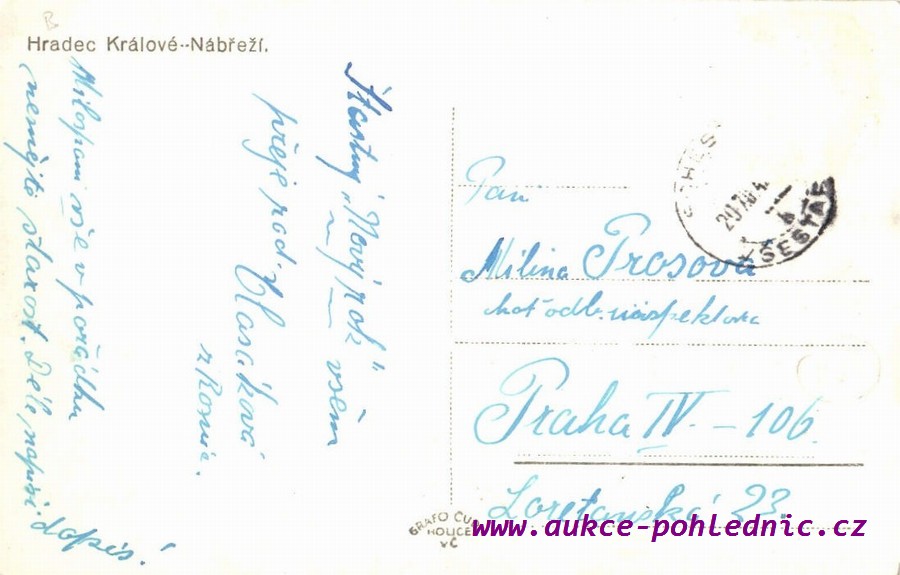 Hradec Králové--Nábřeží.
Šťastný „Nový rok"
všem
přeje rod. Vlasáková
z Roma.
Milospaní vše v pořádku
nemějte starost. Déle napíši dopis!
Paní
Milina Prosová
choť odb. inspektora
Praha IV. - 106.
Loretanská 23.
20 XII 4
VŠESTAR
GRAFO ČUDA
HOLICE
VČ
www.aukce-pohlednic.cz